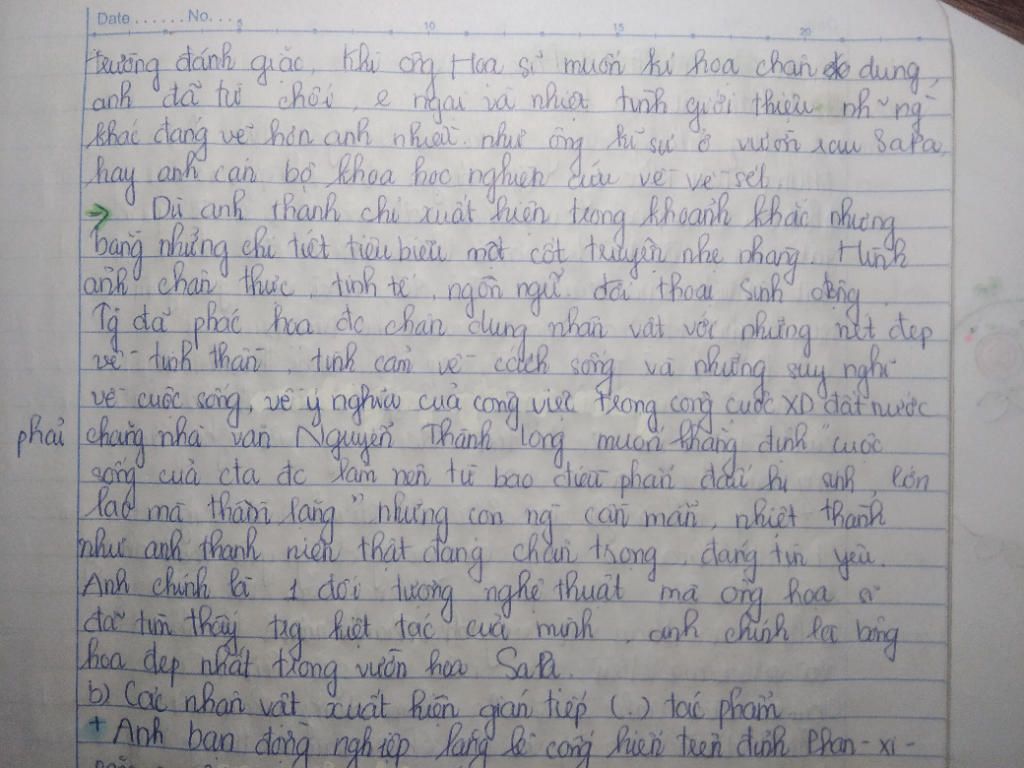 Date ...... No. ..
5 10 15 20
trường đánh giặc, khi ông Hoạ sĩ muốn kí hoạ chân dung,
anh đã từ chối, e ngại và nhiệt tình giới thiệu những
khác đáng vẽ hơn anh nhiều như ông kĩ sư ở vườn rau SaPa,
hay anh cán bộ khoa học nghiên cứu về vẽ sét.
→ Dù anh thanh chỉ xuất hiện trong khoảnh khắc nhưng
bằng những chi tiết tiêu biểu một cốt truyện nhẹ nhàng Hình
ảnh chân thực, tinh tế, ngôn ngữ đối thoại sinh động.
Tg đã phác hoạ đc chân dung nhân vật với những nét đẹp
về tinh thần, tình cảm về cách sống và những suy nghĩ
về cuộc sống, về ý nghĩa của công việc trong công cuộc XD đất nước
phải chăng nhà văn Nguyễn Thành Long muốn khẳng định "cuộc
sống của cta đc làm nên từ bao điều phấn đấu hi sinh, lớn
lao mà thầm lặng" những con ng cần mẫn, nhiệt thành
như anh thanh niên thật đáng trân trọng, đáng tin yêu.
Anh chính là 1 đối tượng nghệ thuật mà ông hoạ sĩ
đã tìm thấy trg kiệt tác của mình, anh chính là bông
hoa đẹp nhất trong vườn hoa SaPa.
b) Các nhân vật xuất hiện gián tiếp (.) tác phẩm
+ Anh bạn đồng nghiệp lặng lẽ cống hiến trên đỉnh Phan-xi-